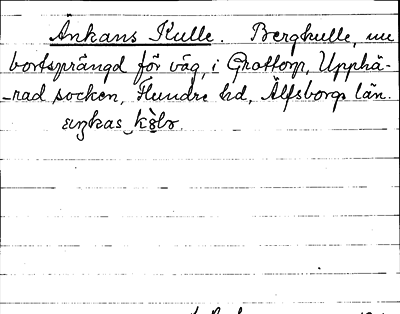 Änkans Kulle. Bergkulle, nu
bortsprängd för väg, i Grottorp, Upphä-
-rad socken, Flundre hd, Älfsborgs län.